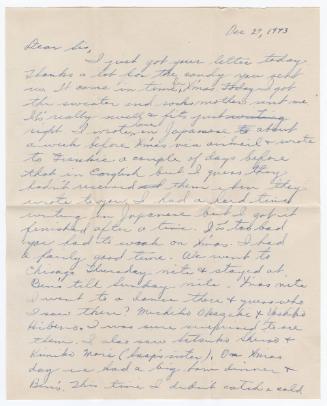 Dec 29, 1943
Dear Sis,
I just got your letter today.
Thanks a lot for the candy you sent
us. It came in time, Xmas today. I got
the sweater and socks mother sent me
It's really swell & fits just
right. I wrote in Japanese to about
a week before Xmas via airmail & wrote
to Frankie a couple of days before
that in English but I guess they
hadn't received them when they
wrote to you. I had a hard time
writing in Japanese but I got it
finished after a time. It's too bad
you had to work on Xmas. I had
a fairly good time. We went to
Chicago Thursday nite & stayed at
Ben's till Sunday nite. Xmas nite
I went to a dance there & guess who
I saw there? Michiko Okazaki & Yoshiko
Hibino. I was sure surprised to see
them. I also saw Setsuko
& Kumiko Mori ( sister). On Xmas
day we had a big dinner at
Ben's. This time I didn't catch a cold